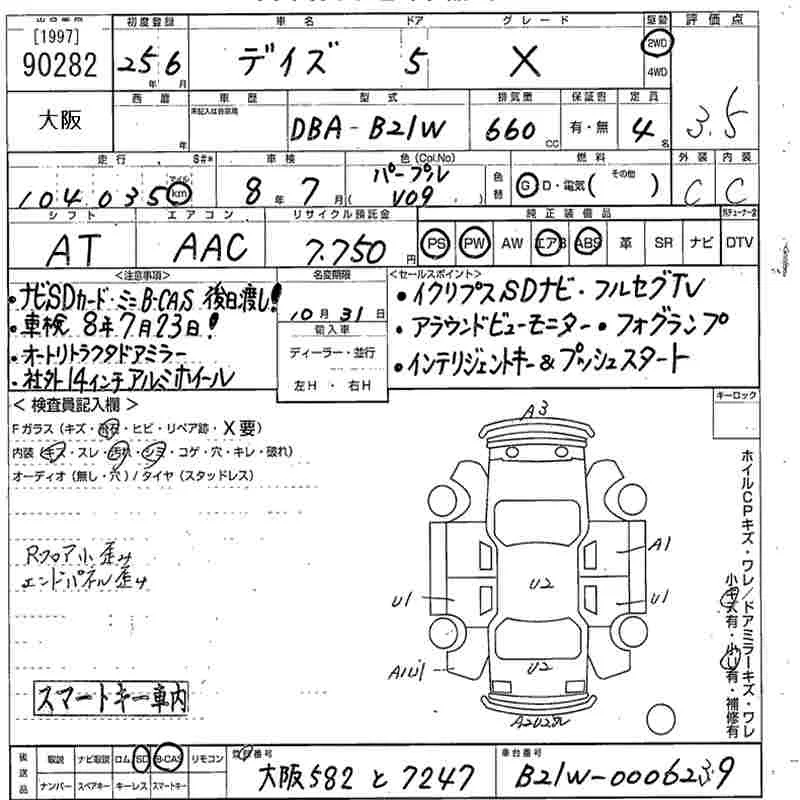 初度登録 車名 ドア グレード 駆動 評価点
[1997]
90282 25 6 デイズ 5 X 2WD
年 月 4WD
大阪 車歴 型式 排気量 保証書 定員 3.5
未記入は自家用
年 DBA-B21W 660 CC 有・無 4 名
走行 S#* 車検 色(Col,No) 燃料 外装 内装
104035 マイル km 8年 7月 (パープル V09) 色替 G D・電気( その他 ) C C
シフト エアコン リサイクル預託金 純正装備品
AT AAC 7.750円 PS PW AW エアB ABS 革 SR ナビ DTV
<注意事項> 名変期限 <セールスポイント>
・ナビSDカード・ミニB-CAS 後日渡し! 10月 31日 ・イクリプスSDナビ・フルセグTV
・車検 8年7月23日! 輸入車 ・アラウンドビューモニター・フォグランプ
・オートリトラクタドアミラー ディーラー・並行 ・インテリジェントキー&プッシュスタート
・社外14インチアルミホイール 左H・右H
<検査員記入欄> キーロック
Fガラス(キズ・飛石・ヒビ・リペア跡・X要)
内装(キズ・スレ・汚れ・シミ・コゲ・穴・キレ・破れ)
オーディオ(無し・穴)/タイヤ(スタッドレス)
A3
Rフロア小歪み
エンドパネル歪み
A1
U2
U1 U1
U2
スマートキー車内
ホイルCPキズ・ワレ/ドアミラーキズ・ワレ
小キズ有・小U有・補修有
後送品 取説 ナビ取説 ロム SD B-CAS リモコン 登録番号 車台番号
ナンバー スペアキー キーレス スマートキー 大阪582 と 7247 B21W-0006239